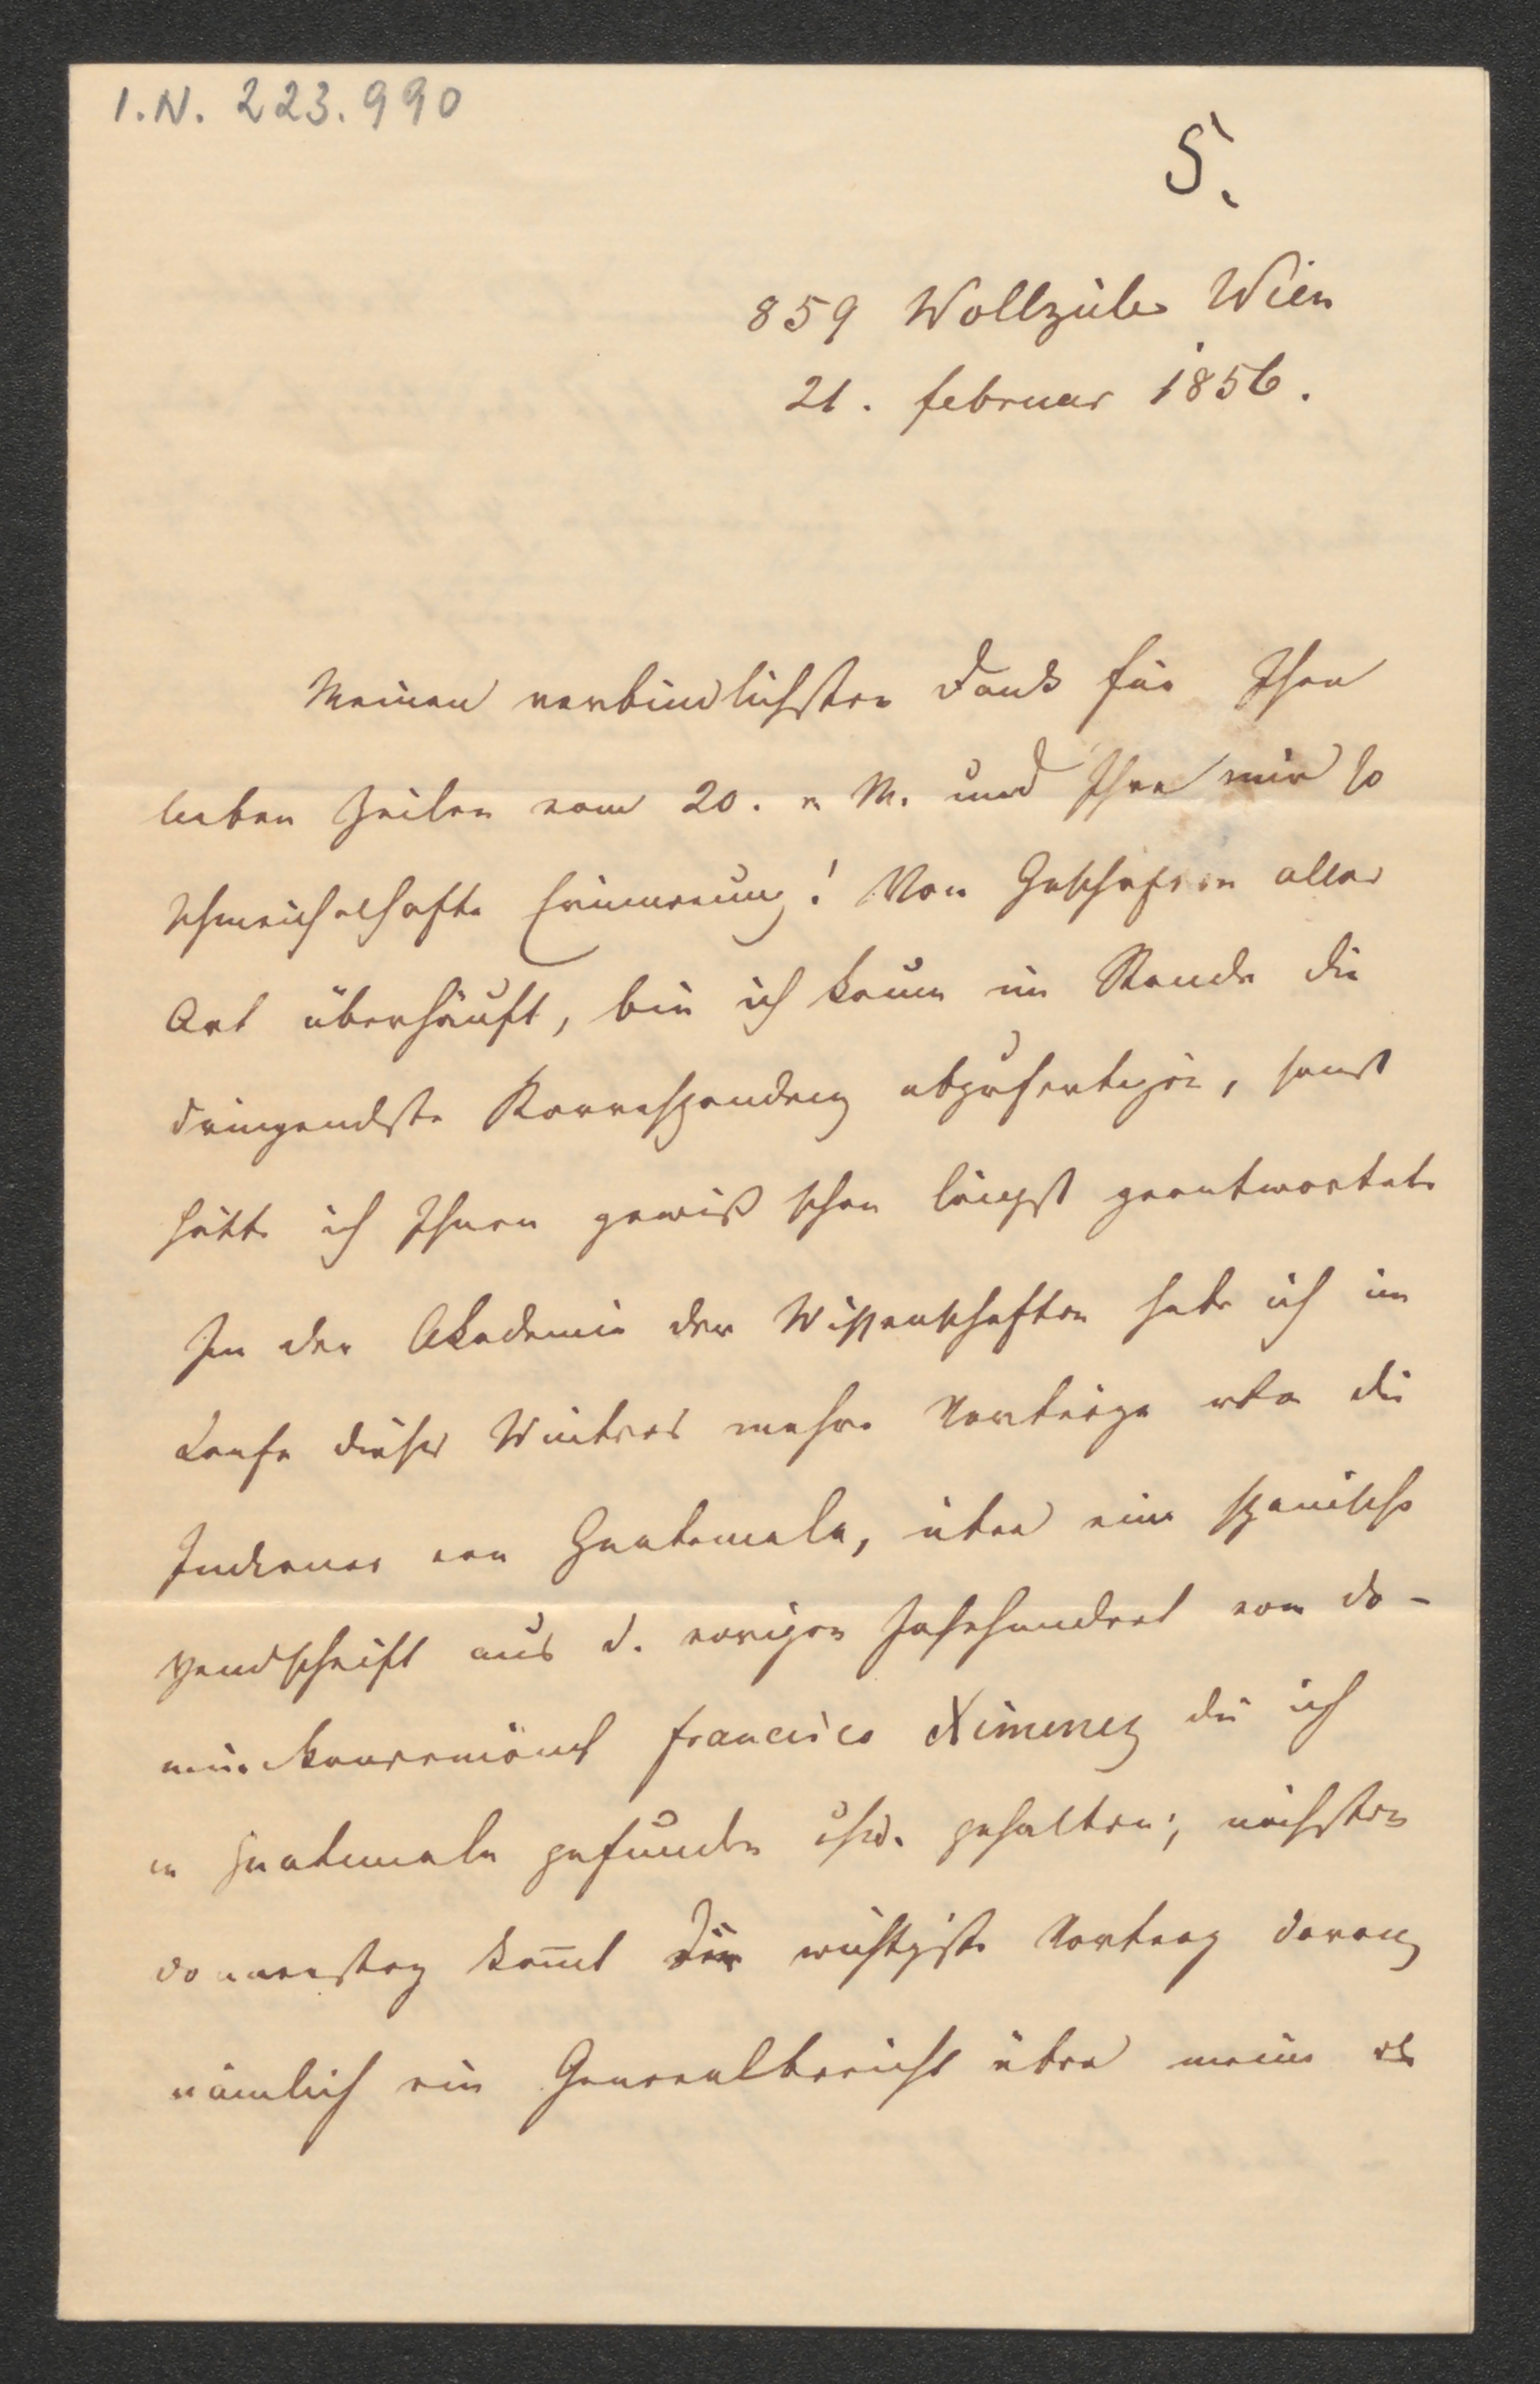 I.N. 223.990
5.
859 Wollzeile Wien
21. Februar 1856.
Meinen verbindlichsten Dank für Ihre
lieben Zeilen vom 20. v M. und Ihre mir so
schmeichelhafte Erinnerung! Von Geschäften aller
Art überhäuft, bin ich kaum im Stande die
dringendste Korrespondenz abzufertigen, sonst
hätte ich Ihnen gewiß schon längst geantwortet.
In der Akademie der Wissenschaften habe ich im
Laufe dieses Winters mehre Vorträge über die
Indianer von Guatemala, über eine spanische
Handschrift aus d. vorigen Jahrhundert vom Do-
minikanermönch Francisco Ximenez die ich
in Guatemala gefunden usw. gehalten; nächsten
Donnerstag kom̄t der wichtigste Vortrag daran,
nämlich ein Generalbericht über meine